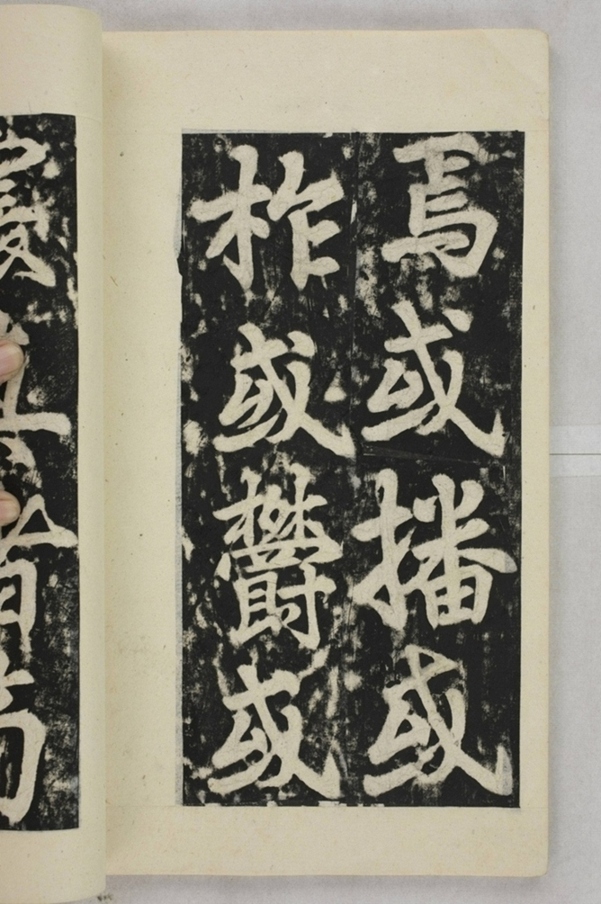 焉或播或
柞或欝或